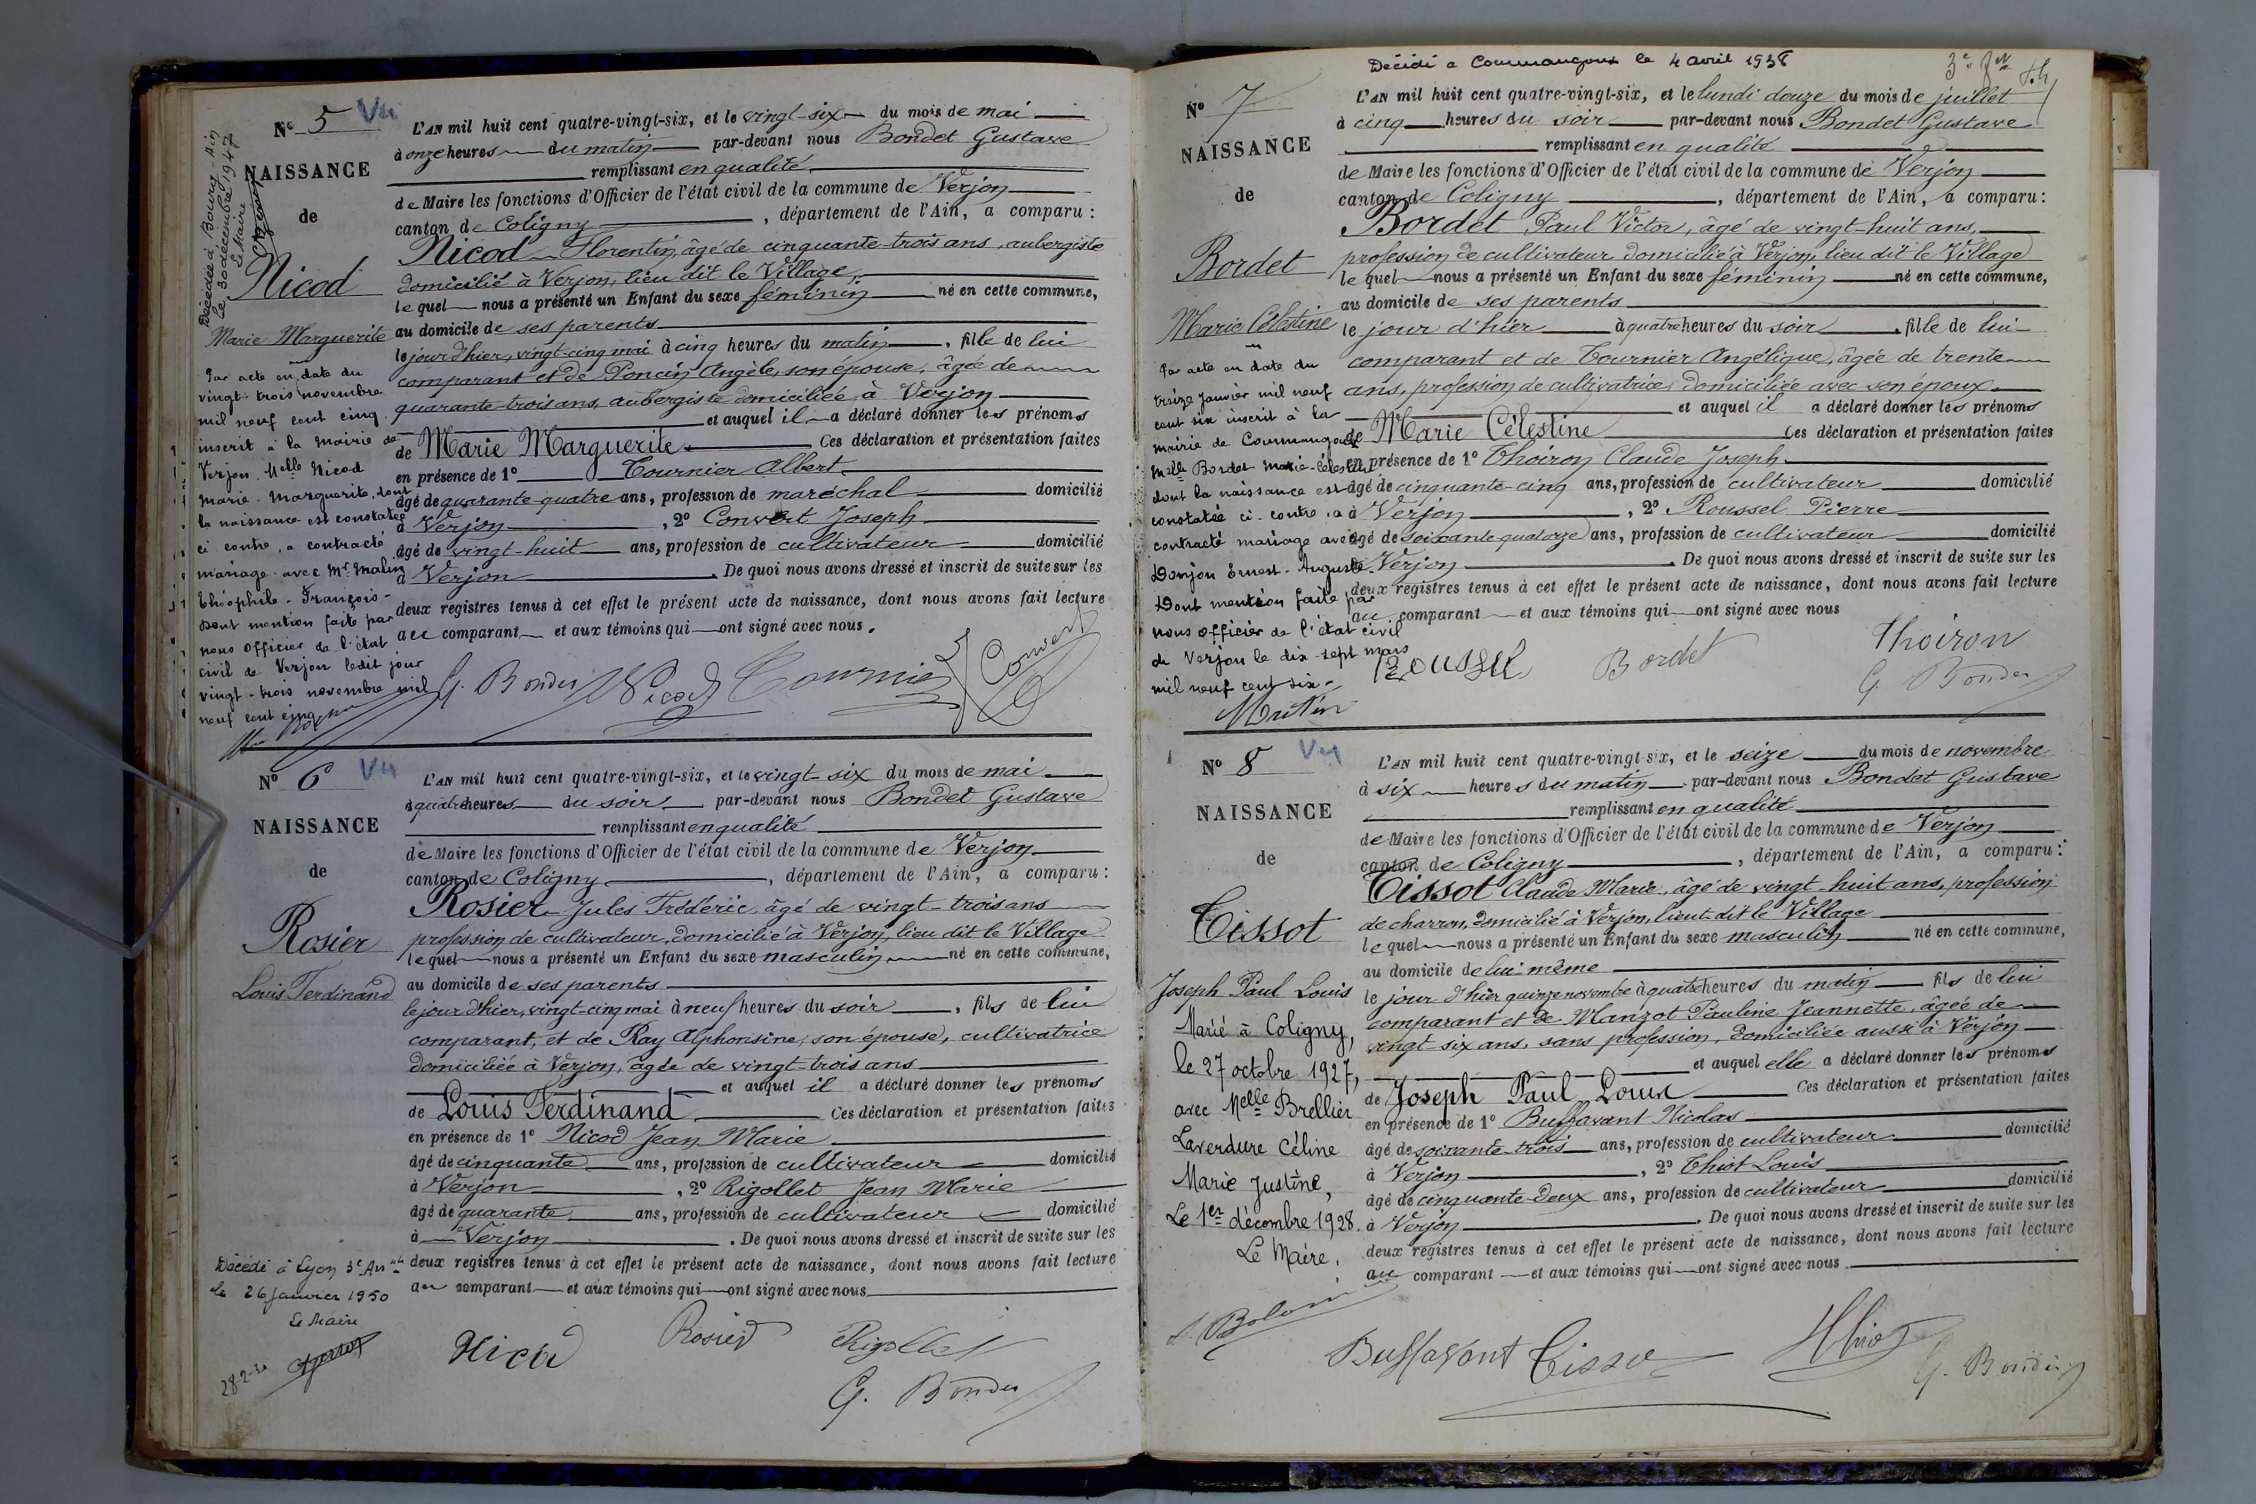 N° 5 Vu
NAISSANCE
de
Nicod
Marie Marguerite
Décédée à Bourg - Ain
le 30 décembre 1947
Le Maire
Par acte en date du
vingt-trois novembre
mil neuf cent cinq
inscrit à la mairie de
Verjon. Melle Nicod
Marie-Marguerite, dont
la naissance est constatée
ci contre, a contracté
mariage avec Mr Malin
Théophile-François-
Dont mention faite par
nous Officier de l'état
civil de Verjon ledit jour
vingt-trois novembre mil
neuf cent cinq
L'AN mil huit cent quatre-vingt-six, et le vingt-six du mois de mai
à onze heures du matin par-devant nous Bondet Gustave
remplissant en qualité
de Maire les fonctions d'Officier de l'état civil de la commune de Verjon
canton de Coligny, département de l'Ain, a comparu :
Nicod Florentin, âgé de cinquante-trois ans, aubergiste
domicilié à Verjon, lieu dit le Village,
lequel nous a présenté un Enfant du sexe féminin né en cette commune,
au domicile de ses parents
le jour d'hier, vingt-cinq mai à cinq heures du matin, fille de lui
comparant et de Poncin Angèle, son épouse, âgée de
quarante-trois ans, aubergiste domiciliée à Verjon
et auquel il a déclaré donner les prénoms
de Marie Marguerite Ces déclaration et présentation faites
en présence de 1° Tournier Albert
âgé de quarante-quatre ans, profession de maréchal domicilié
à Verjon, 2° Convert Joseph
âgé de vingt-huit ans, profession de cultivateur domicilié
à Verjon. De quoi nous avons dressé et inscrit de suite sur les
deux registres tenus à cet effet le présent acte de naissance, dont nous avons fait lecture
au comparant et aux témoins qui ont signé avec nous.
G. Bondet Nicod Tournier Convert
N° 6 Vu
NAISSANCE
de
Rosier
Louis Ferdinand
Décédé à Lyon 3e Arrt
le 26 janvier 1950
Le Maire
28-2-50
L'AN mil huit cent quatre-vingt-six, et le vingt-six du mois de mai
à quatre heures du soir par-devant nous Bondet Gustave
remplissant en qualité
de Maire les fonctions d'Officier de l'état civil de la commune de Verjon
canton de Coligny, département de l'Ain, a comparu :
Rosier Jules Frédéric, âgé de vingt-trois ans
profession de cultivateur, domicilié à Verjon, lieu dit le Village
lequel nous a présenté un Enfant du sexe masculin né en cette commune,
au domicile de ses parents
le jour d'hier, vingt-cinq mai à neuf heures du soir, fils de lui
comparant, et de Ray Alphonsine, son épouse, cultivatrice
domiciliée à Verjon, âgée de vingt-trois ans
et auquel il a déclaré donner les prénoms
de Louis Ferdinand Ces déclaration et présentation faites
en présence de 1° Nicod Jean Marie
âgé de cinquante ans, profession de cultivateur domicilié
à Verjon, 2° Rigollet Jean Marie
âgé de quarante ans, profession de cultivateur domicilié
à Verjon. De quoi nous avons dressé et inscrit de suite sur les
deux registres tenus à cet effet le présent acte de naissance, dont nous avons fait lecture
au comparant et aux témoins qui ont signé avec nous
Nicod Rosier Rigollet
G. Bondet
Décédé a Coumangoux le 4 avril 1938
N° 7
NAISSANCE
de
Bordet
Marie Célestine
Par acte en date du
treize janvier mil neuf
cent six inscrit à la
mairie de Coumangoux
Melle Bordet Marie-Célestine
dont la naissance est
constatée ci-contre a
contracté mariage avec
Donjon Ernest-Auguste.
Dont mention faite par
nous officier de l'état civil
de Verjon le dix-sept mars
mil neuf cent six-
Martin
L'AN mil huit cent quatre-vingt-six, et le lundi douze du mois de juillet
à cinq heures du soir par-devant nous Bondet Gustave
remplissant en qualité
de Maire les fonctions d'Officier de l'état civil de la commune de Verjon
canton de Coligny, département de l'Ain, a comparu :
Bordet Paul Victor, âgé de vingt-huit ans,
profession de cultivateur domicilié à Verjon, lieu dit le Village
lequel nous a présenté un Enfant du sexe féminin né en cette commune,
au domicile de ses parents
le jour d'hier à quatre heures du soir, fille de lui
comparant et de Tournier Angélique, âgée de trente
ans, profession de cultivatrice, domiciliée avec son époux
et auquel il a déclaré donner les prénoms
de Marie Célestine Ces déclaration et présentation faites
en présence de 1° Thoiron Claude Joseph
âgé de cinquante-cinq ans, profession de cultivateur domicilié
à Verjon, 2° Roussel Pierre
âgé de soixante quatorze ans, profession de cultivateur domicilié
à Verjon. De quoi nous avons dressé et inscrit de suite sur les
deux registres tenus à cet effet le présent acte de naissance, dont nous avons fait lecture
au comparant et aux témoins qui ont signé avec nous
Roussel Bordet Thoiron
G. Bondet
N° 8 Vu
NAISSANCE
de
Tissot
Joseph Paul Louis
Marié à Coligny,
le 27 octobre 1927,
avec Melle Brellier
Laverdure Céline
Marie Justine,
Le 1er décembre 1928.
Le Maire,
L'AN mil huit cent quatre-vingt-six, et le seize du mois de novembre
à six heures du matin par-devant nous Bondet Gustave
remplissant en qualité
de Maire les fonctions d'Officier de l'état civil de la commune de Verjon
canton de Coligny, département de l'Ain, a comparu :
Tissot Claude Marie, âgé de vingt huit ans, profession
de charron, domicilié à Verjon, lieut-dit le Village
lequel nous a présenté un Enfant du sexe masculin né en cette commune,
au domicile de lui-même
le jour d'hier quinze novembre à quatre heures du matin fils de lui
comparant et de Manzot Pauline Jeannette, âgée de
vingt six ans, sans profession, domiciliée aussi à Verjon
et auquel elle a déclaré donner les prénoms
de Joseph Paul Louis Ces déclaration et présentation faites
en présence de 1° Buffavant Nicolas
âgé de soixante-trois ans, profession de cultivateur domicilié
à Verjon, 2° Thiot Louis
âgé de cinquante-deux ans, profession de cultivateur domicilié
à Verjon. De quoi nous avons dressé et inscrit de suite sur les
deux registres tenus à cet effet le présent acte de naissance, dont nous avons fait lecture
au comparant et aux témoins qui ont signé avec nous
Buffavant Tissot Thiot G. Bondet